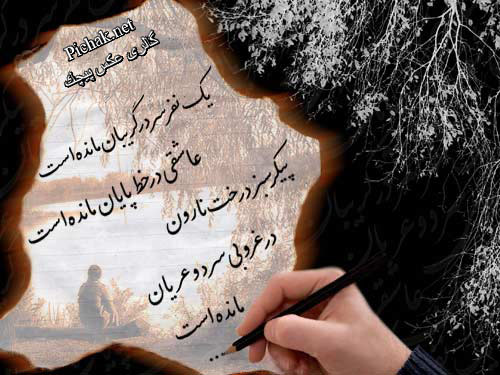 Pichak.net
گالری عکس پیچک
یک نفر سر در گریبان مانده است
عاشقی در خط پایان مانده است
پیکر سبز درخت نارون
در غروبی سرد و عریان
مانده است
...